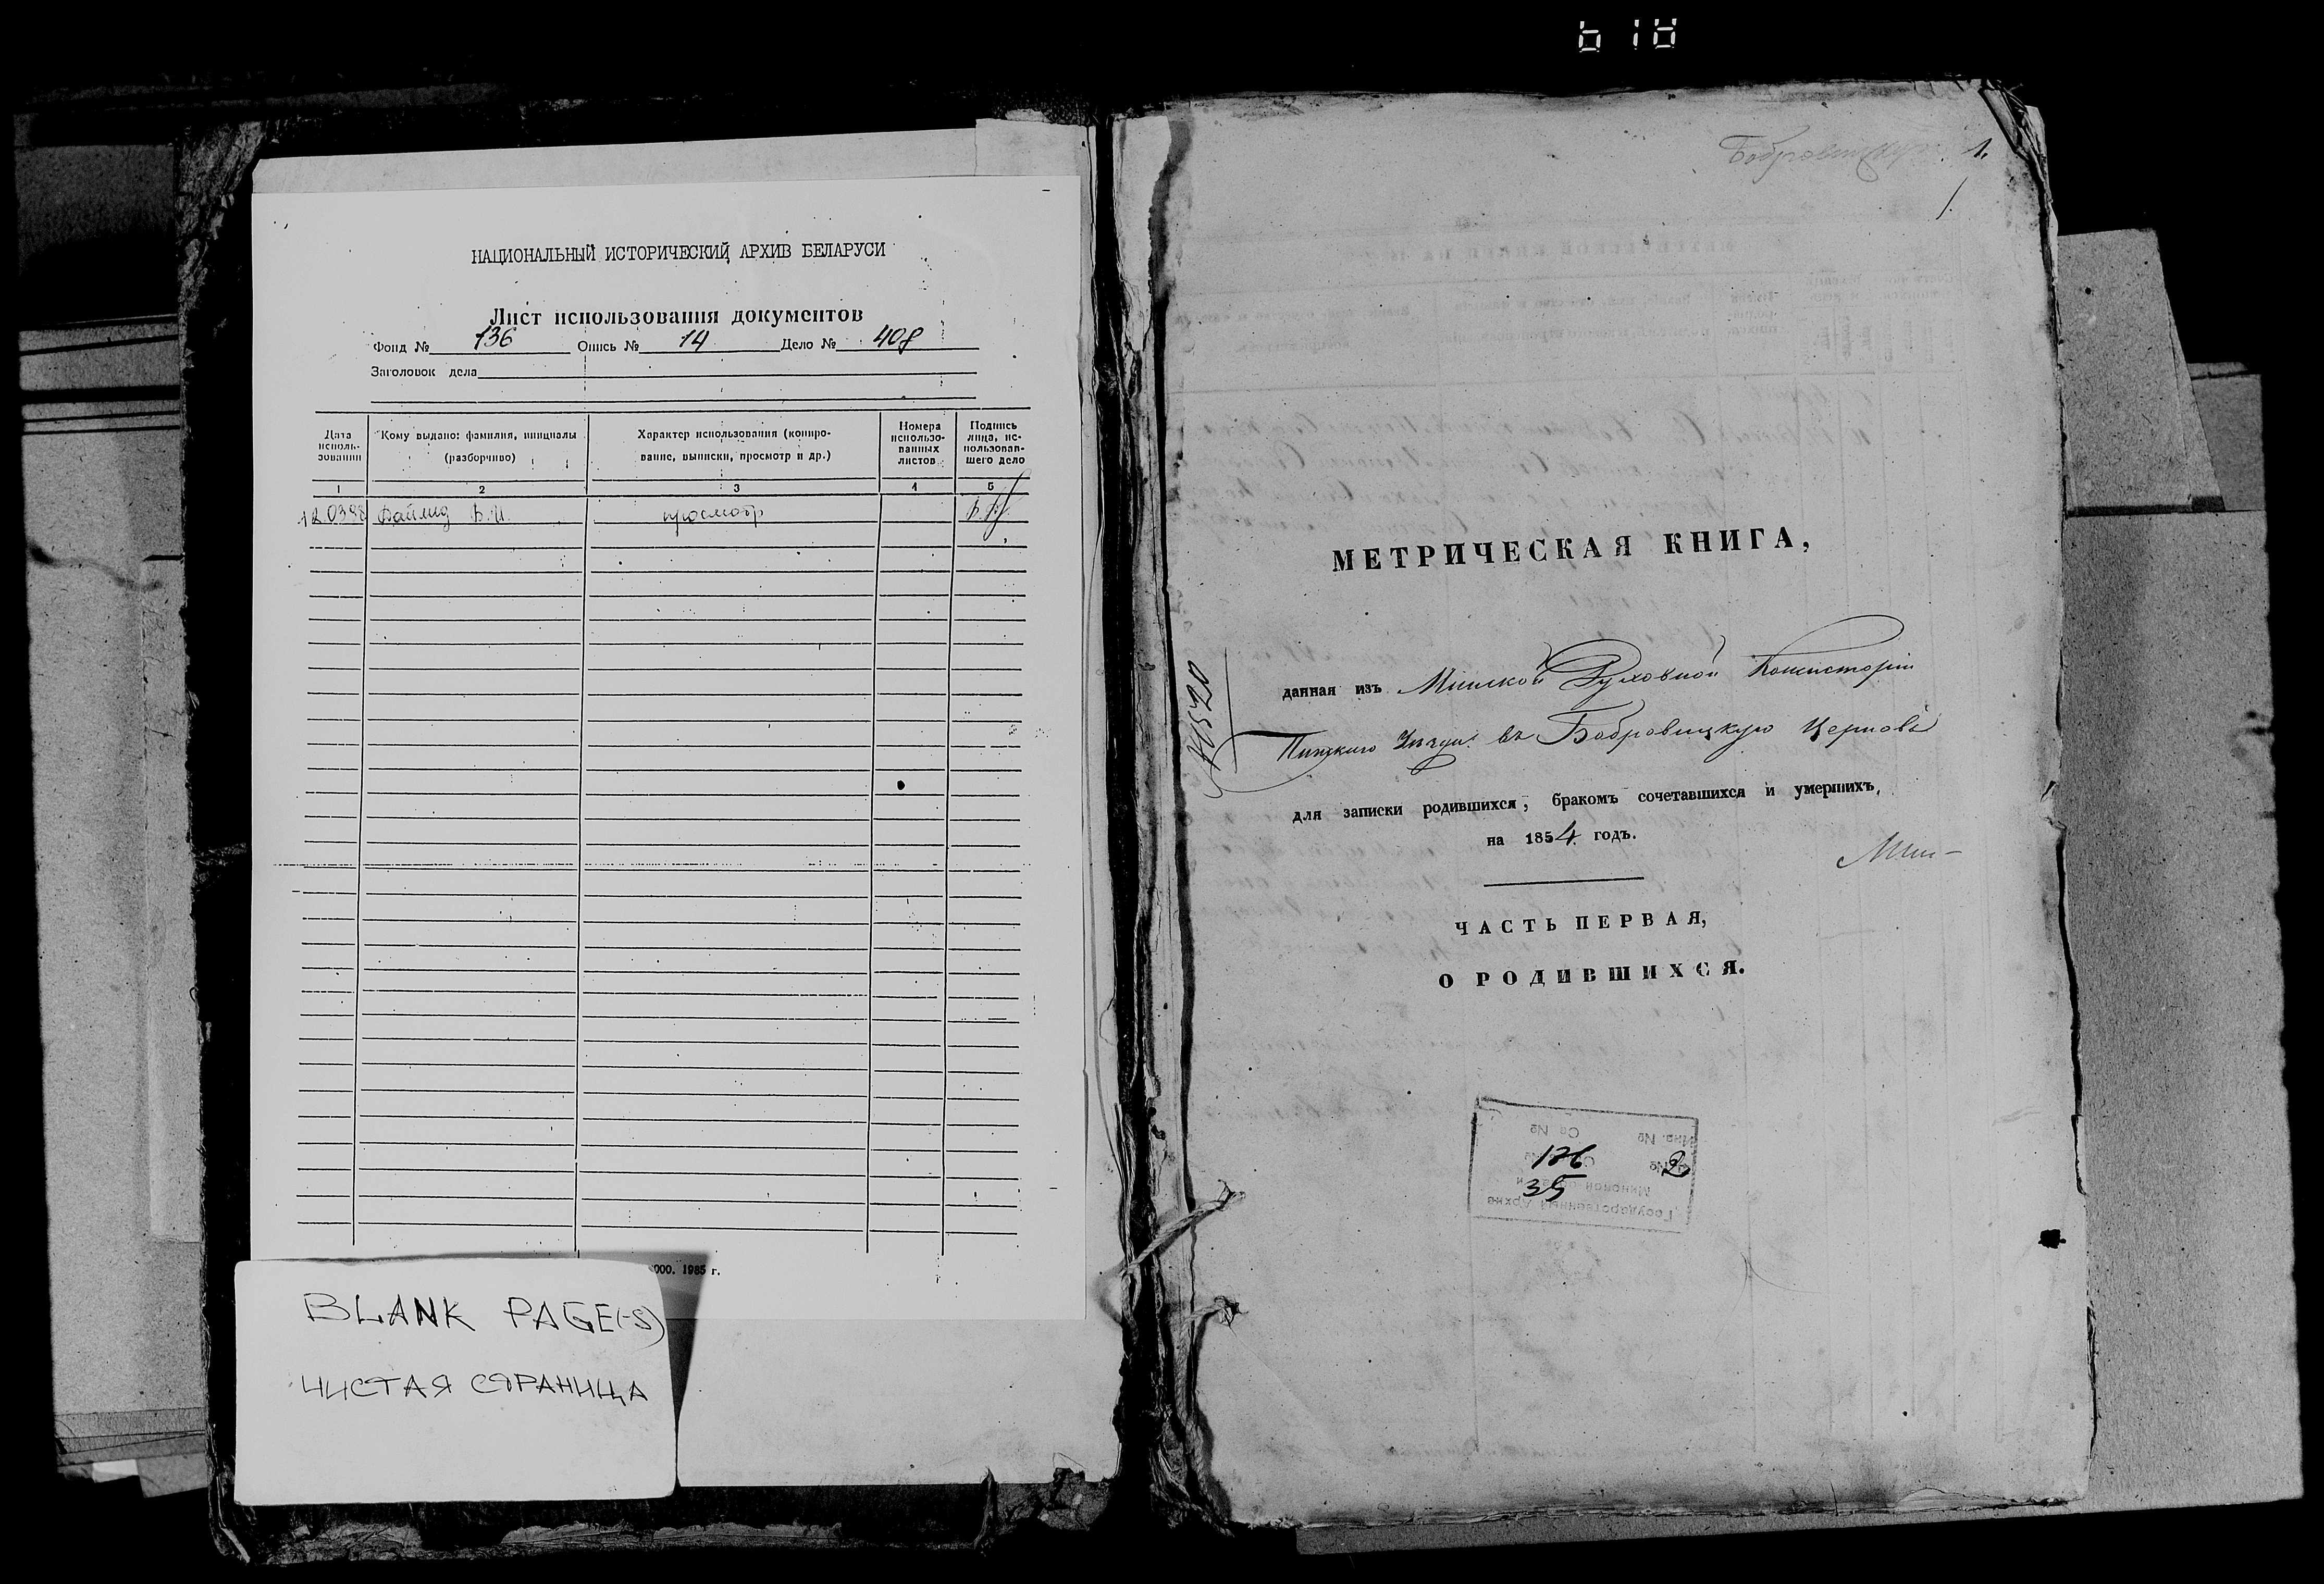 НАЦИОНАЛЬНЫЙ ИСТОРИЧЕСКИЙ АРХИВ БЕЛАРУСИ
Лист использования документов
Фонд № 136 Опись № 14 Дело № 408
Заголовок дела
Дата исполь-зования
Кому выдано: фамилия, инициалы (разборчиво)
Характер использования (копиро-вание, выписки, просмотр и др.)
Номера использо-ванных листов
Подпись лица, ис-пользовав-шего дело
1 2 3 4 5
просмотр
000. 1985 г.
BLANK PAGE(-S)
ЧИСТАЯ СТРАНИЦА
Бобровицкую 1.
1.
МЕТРИЧЕСКАЯ КНИГА,
данная изъ Минской Духовной Консисторіи
Пинскаго Уезда въ Бобровицкую Церковь
для записки родившихся, бракомъ сочетавшихся и умершихъ,
на 1854 годъ.
ЧАСТЬ ПЕРВАЯ,
О РОДИВШИХСЯ.
Св. №
Инв. №
136 2
35
Государственный Архив